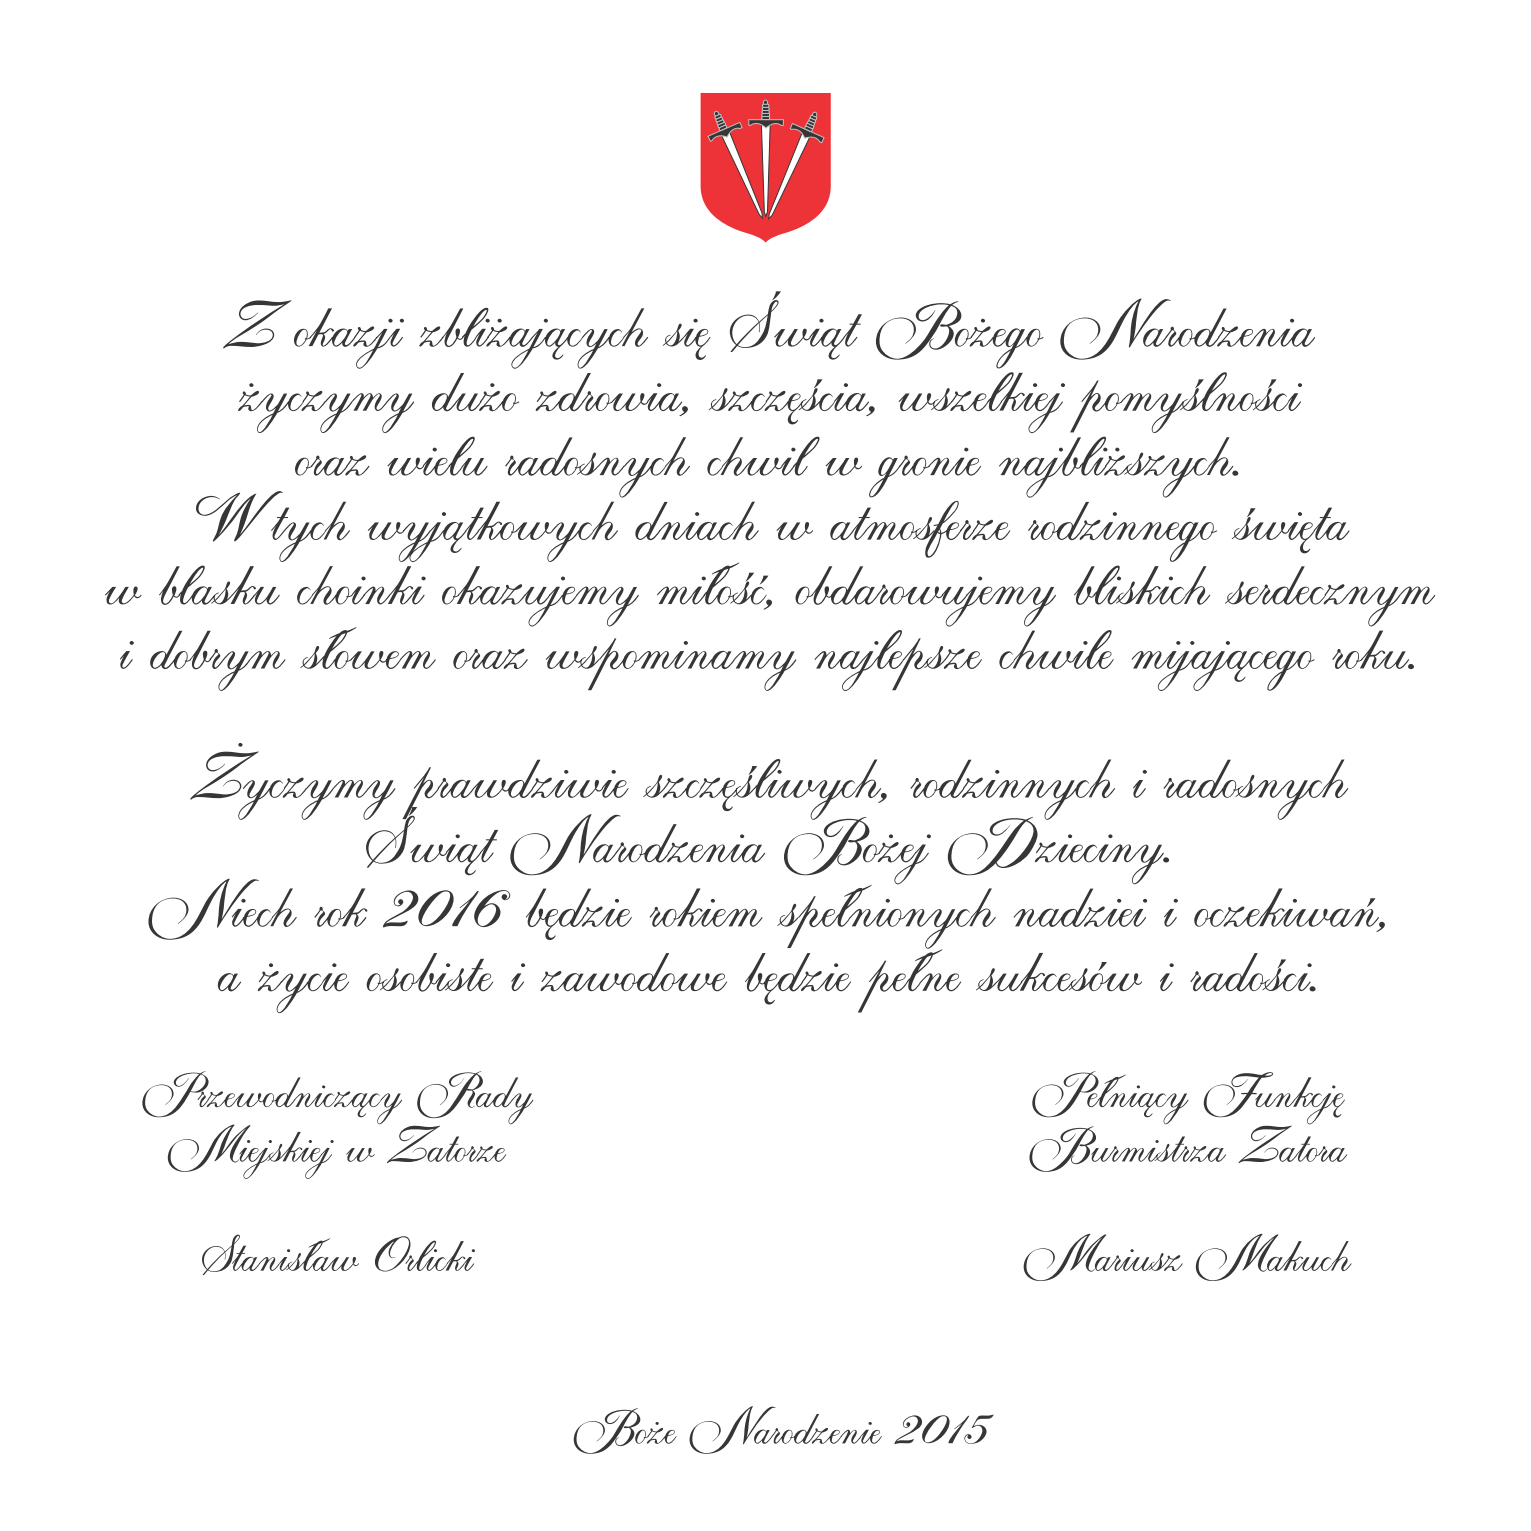 Z okazji zbliżających się Świąt Bożego Narodzenia
życzymy dużo zdrowia, szczęścia, wszelkiej pomyślności
oraz wielu radosnych chwil w gronie najbliższych.
W tych wyjątkowych dniach w atmosferze rodzinnego święta
w blasku choinki okazujemy miłość, obdarowujemy bliskich serdecznym
i dobrym słowem oraz wspominamy najlepsze chwile mijającego roku.
Życzymy prawdziwie szczęśliwych, rodzinnych i radosnych
Świąt Narodzenia Bożej Dzieciny.
Niech rok 2016 będzie rokiem spełnionych nadziei i oczekiwań,
a życie osobiste i zawodowe będzie pełne sukcesów i radości.
Przewodniczący Rady
Miejskiej w Zatorze
Stanisław Orlicki
Pełniący Funkcję
Burmistrza Zatora
Mariusz Makuch
Boże Narodzenie 2015